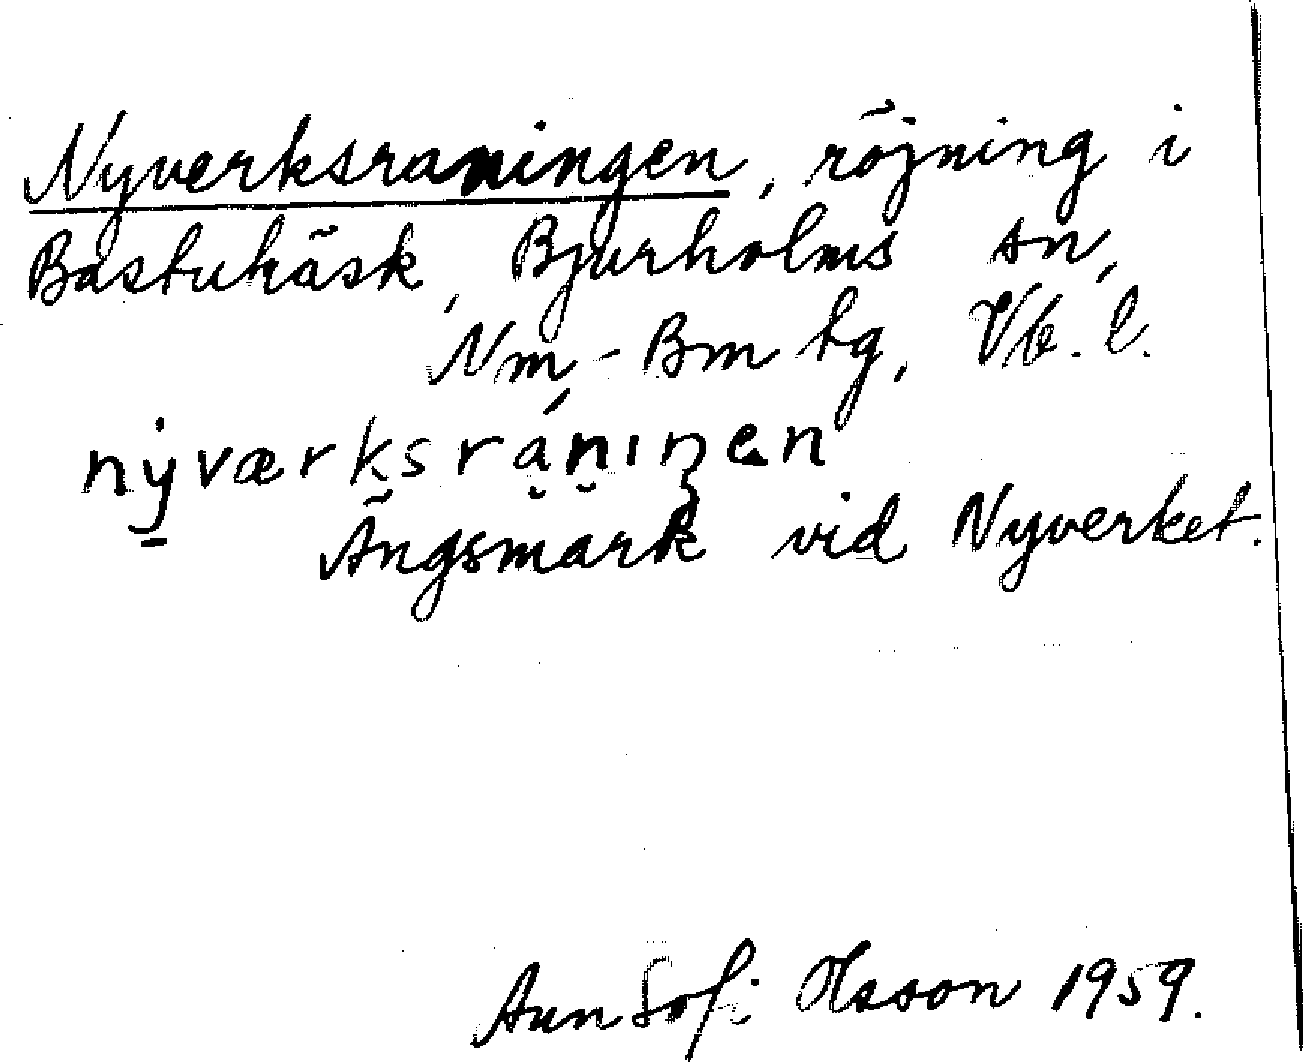 Nyverksraningen, röjning i
Bastukäsk, Bjurholms sn,
Nm-Bm tg, Vb. l.
nyværksráningen
Ängsmark vid Nyverket.
Ann Sofi Olsson 1959.